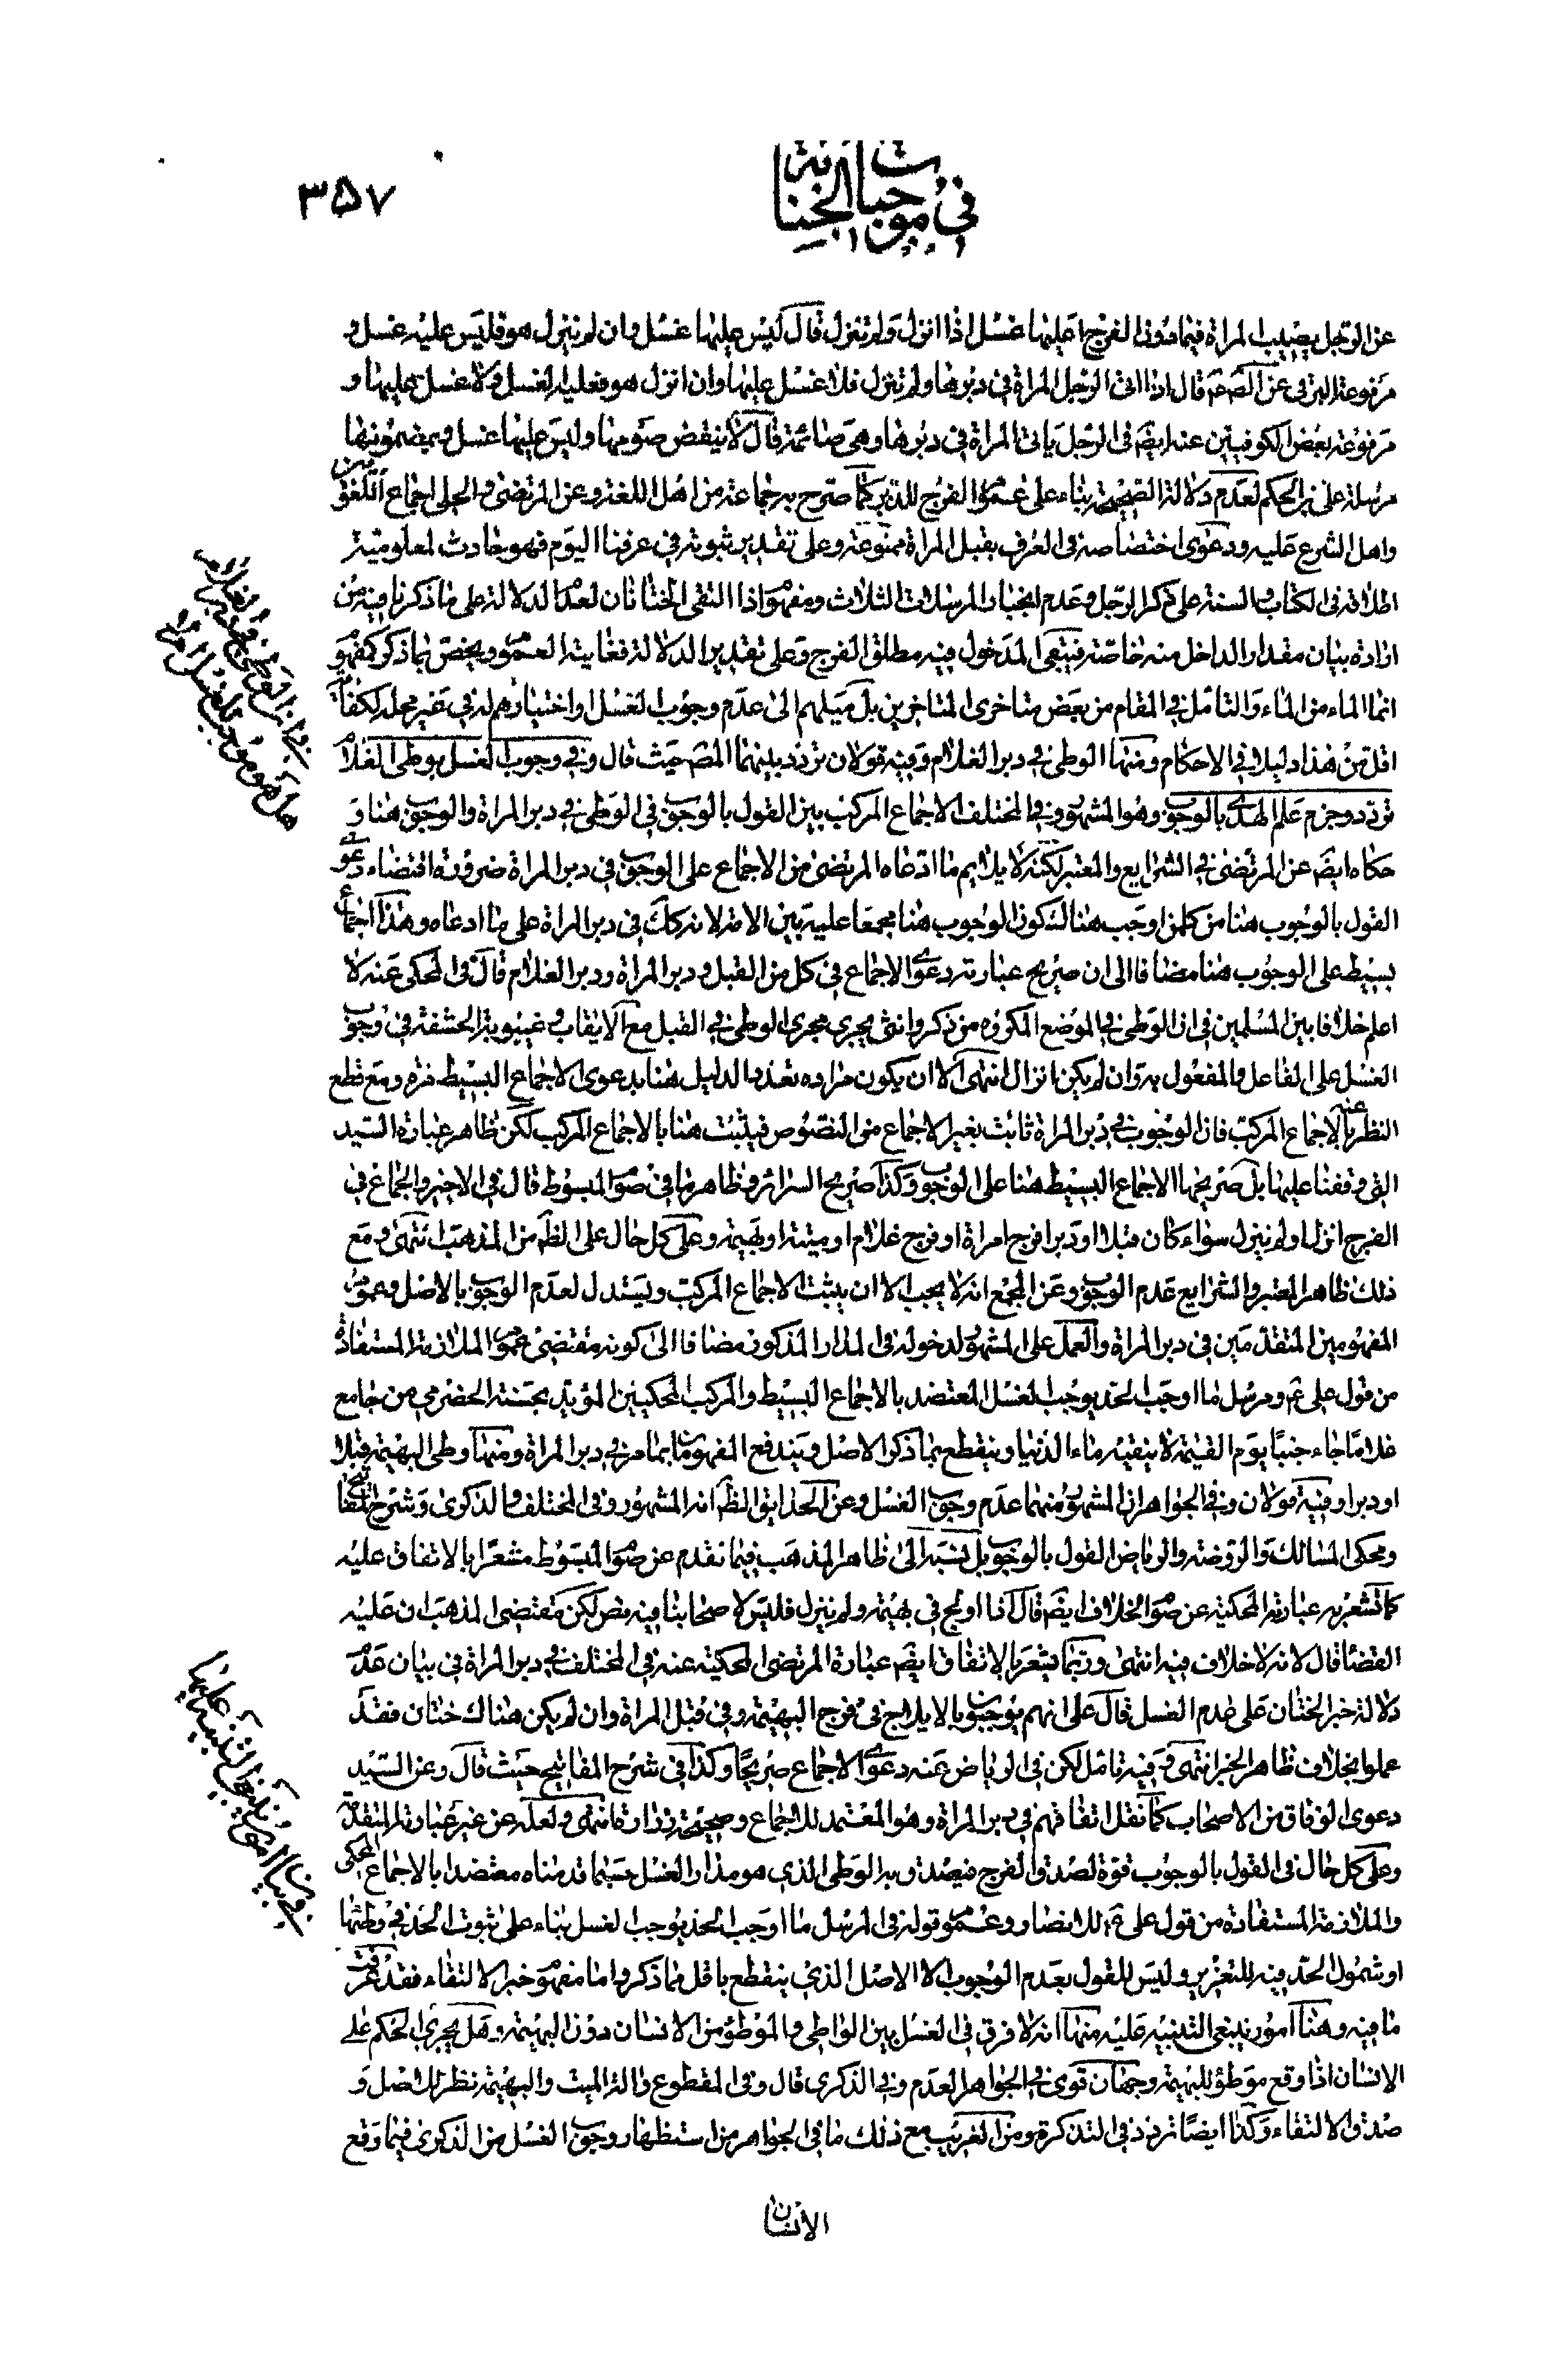 في موجبات الجنابة
٣٥٧
عن الرجل يصيب المراة فيما دون الفرج اعليها غسل اذا انزل ولم تنزل قال ليس عليها غسل وان لم ينزل هو فليس عليه غسل و
مرفوعة البرقى عن الصّم قال اذا اتى الرجل المراة في دبرها ولم تنزل فلا غسل عليها وان انزل هو فعليه الغسل ولا غسل عليها و
مرفوعة بعض الكوفيين عنه ايضً في الرجل ياتى المراة في دبرها وهى صائمة قال لا ينقض صومها وليس عليها غسل وبمضمونها
مرسلة على بن الحكم لعدم دلالة الصحيحة بناء على عموم الفرج للدبر كما صرح به جماعة من اهل اللغة وعن المرتضى والحلى اجماع اللغويين
واهل الشرع عليه ودعوى اختصاصه في العرف بقبل المراة ممنوعة وعلى تقدير ثبوته في عرفنا اليوم فهو حادث لمعلومية
اطلاقه في الكتاب والسنة على ذكر الرجل وعدم انجبار المرسلات الثلاث ومفهوم اذا التقى الختانان لعدم الدلالة على ما ذكرنا فيه من
ارادة بيان مقدار الداخل منه خاصّة فيبقى المدخول فيه مطلق الفرج وعلى تقدير الدلالة فغايته العموم ويخصّ بما ذكر كمفهوم
انما الماء من الماء والتامل في المقام من بعض متاخرى المتاخرين بل ميلهم الى عدم وجوب الغسل او اختيارهم له في غير محله لكفاية
اقل من هذا دليلا في الاحكام ومنها الوطى في دبر الغلام وفيه قولان تردد بينهما المصً حيث قال وفي وجوب الغسل بوطى الغلام
تردد وجزم علم الهدى بالوجوب وهو المشهور وفي المختلف الاجماع المركب بين القول بالوجوب في الوطى في دبر المراة والوجوب هنا و
حكاه ايضً عن المرتضى في الشرايع والمعتبر لكنه لا يلايم ما ادعاه المرتضى من الاجماع على الوجوب في دبر المراة ضرورة اقتضاء دعوى
القول بالوجوب هنا من كل من اوجب هنالك كون الوجوب هنا مجمعا عليه بين الامة لانه كك في دبر المراة على ما ادعاه وهذا اجماع
بسيط على الوجوب هنا مضافا الى ان صريح عبارته دعوى الاجماع في كل من القبل و دبر المراة ودبر الغلام قال في المحكى عنه لا
اعلم خلافا بين المسلمين في ان الوطى في الموضع المكروه من ذكر وانثى يجرى مجرى الوطى في القبل مع الايقاب وغيبوبة الحشفة في وجوب
الغسل على الفاعل والمفعول به وان لم يكن انزال انتهى الا ان يكون مراده تعدد الدليل هنا بدعوى الاجماع البسيط مرة ومع قطع
النظر عنه بالاجماع المركب فان الوجوب في دبر المراة ثابت بغير الاجماع من النصوص فيثبت هنا بالاجماع المركب لكن ظاهر عبارة السيد
التى وقفنا عليها بل صريحها الاجماع البسيط هنا على الوجوب وكذا صريح السرائر وظاهر ما في صوم المبسوط قال في الاخير والجماع في
الفرج انزل او لم ينزل سواء كان قبلا او دبرا فرج امراة او فرج غلام او ميتة او بهيمة وعلى كل حال على الظّ من المذهب انتهى ومع
ذلك ظاهر المعتبر والشرايع عدم الوجوب وعن المجمع انه لا يجب الا ان يثبت الاجماع المركب ويستدل لعدم الوجوب بالاصل وعموم
المفهومين المتقدمين في دبر المراة والعمل على المشهور لدخوله في المدار المذكور مضافا الى كونه مقتضى عموم الملازمة المستفادة
من قول على ع ومرسل ما اوجب الحد يوجب الغسل المعتضد بالاجماع البسيط والمركب المحكيين المؤيد بحسنة الحضرمى من جامع
غلاما جاء جنبًا يوم القيمة لا ينقيه ماء الدنيا وينقطع بما ذكر الاصل ويندفع المفهومان بما مر في دبر المراة ومنها وطى البهيمة قبلا
او دبرا وفيه قولان وفي الجواهر ان المشهور منهما عدم وجوب الغسل وعن الحدايق الظّ انه المشهور وفي المختلف والذكرى وشرح المفاتيح
ومحكى المسالك والروضة والرياض القول بالوجوب بل نسبه الى ظاهر المذهب فيما تقدم عن صوم المبسوط مشعرا بالاتفاق عليه
كما تشعر به عبارته المحكية عن صوم الخلاف ايضً قال اذا اولج في بهيمة ولم ينزل فليس لاصحابنا فيه نص لكن مقتضى المذهب ان عليه
القضاء قال لانه لا خلاف فيه انتهى وربما يشعر بالاتفاق ايضً عبارة المرتضى المحكية عنه في المختلف في دبر المراة في بيان عدم
دلالة خبر الختان على عدم الغسل قال على انهم يوجبون بالايلاج في فرج البهيمة وفي قبل المراة وان لم يكن هناك ختان فقد
عملوا بخلاف ظاهر الخبر انتهى وفيه تامل لكن في الرياض عنه دعوى الاجماع صريحًا وكذا في شرح المفاتيح حيث قال وعن السيد
دعوى الوفاق من الاصحاب كما نقل اتفاقهم في دبر المراة وهو المعتمد للاجماع وصحيحة زرارة انتهى ولعله عن غير عبارته المتقدمة
وعلى كل حال في القول بالوجوب قوة لصدق الفرج فيصدق به الوطى الذي هو مدار الغسل حسبما قدمناه معتضدا بالاجماع المحكى
والملازمة المستفادة من قول على ع للانصار وعموم قوله في المرسل ما اوجب الحد يوجب الغسل بناء على ثبوت الحد في وطئها
او شمول الحد فيه للتعزير وليس للقول بعدم الوجوب الا الاصل الذي ينقطع باقل مما ذكر واما مفهوم خبر الالتقاء فقد عرفت
ما فيه وهنا امور ينبغى التنبيه عليه منها انه لا فرق في الغسل بين الواطى والموطؤ من الانسان دون البهيمة وهل يجرى الحكم على
الانسان اذا وقع موطؤ للبهيمة وجهان قوى في الجواهر العدم وفي الذكرى قال وفي المقطوع والة الميت والبهيمة نظر للاصل و
صدق الالتقاء وكذا ايضًا تردد في التذكرة ومن الغريب مع ذلك ما في الجواهر من استظهار وجوب الغسل من الذكرى فيما وقع
الانسان